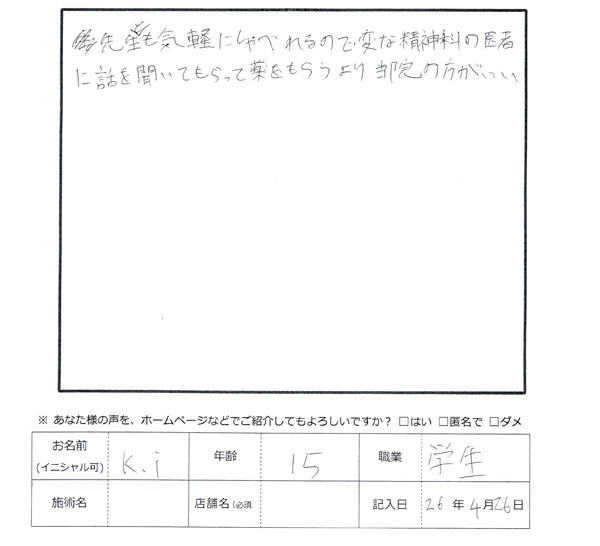 先生も気軽にしゃべれるので変な精神科の医者
に話を聞いてもらって薬をもらうより当院の方がいい
※ あなた様の声を、ホームページなどでご紹介してもよろしいですか? □はい □匿名で □ダメ
お名前 (イニシャル可) K.i 年齢 15 職業 学生
施術名 店舗名(必須) 記入日 26 年 4 月 26 日